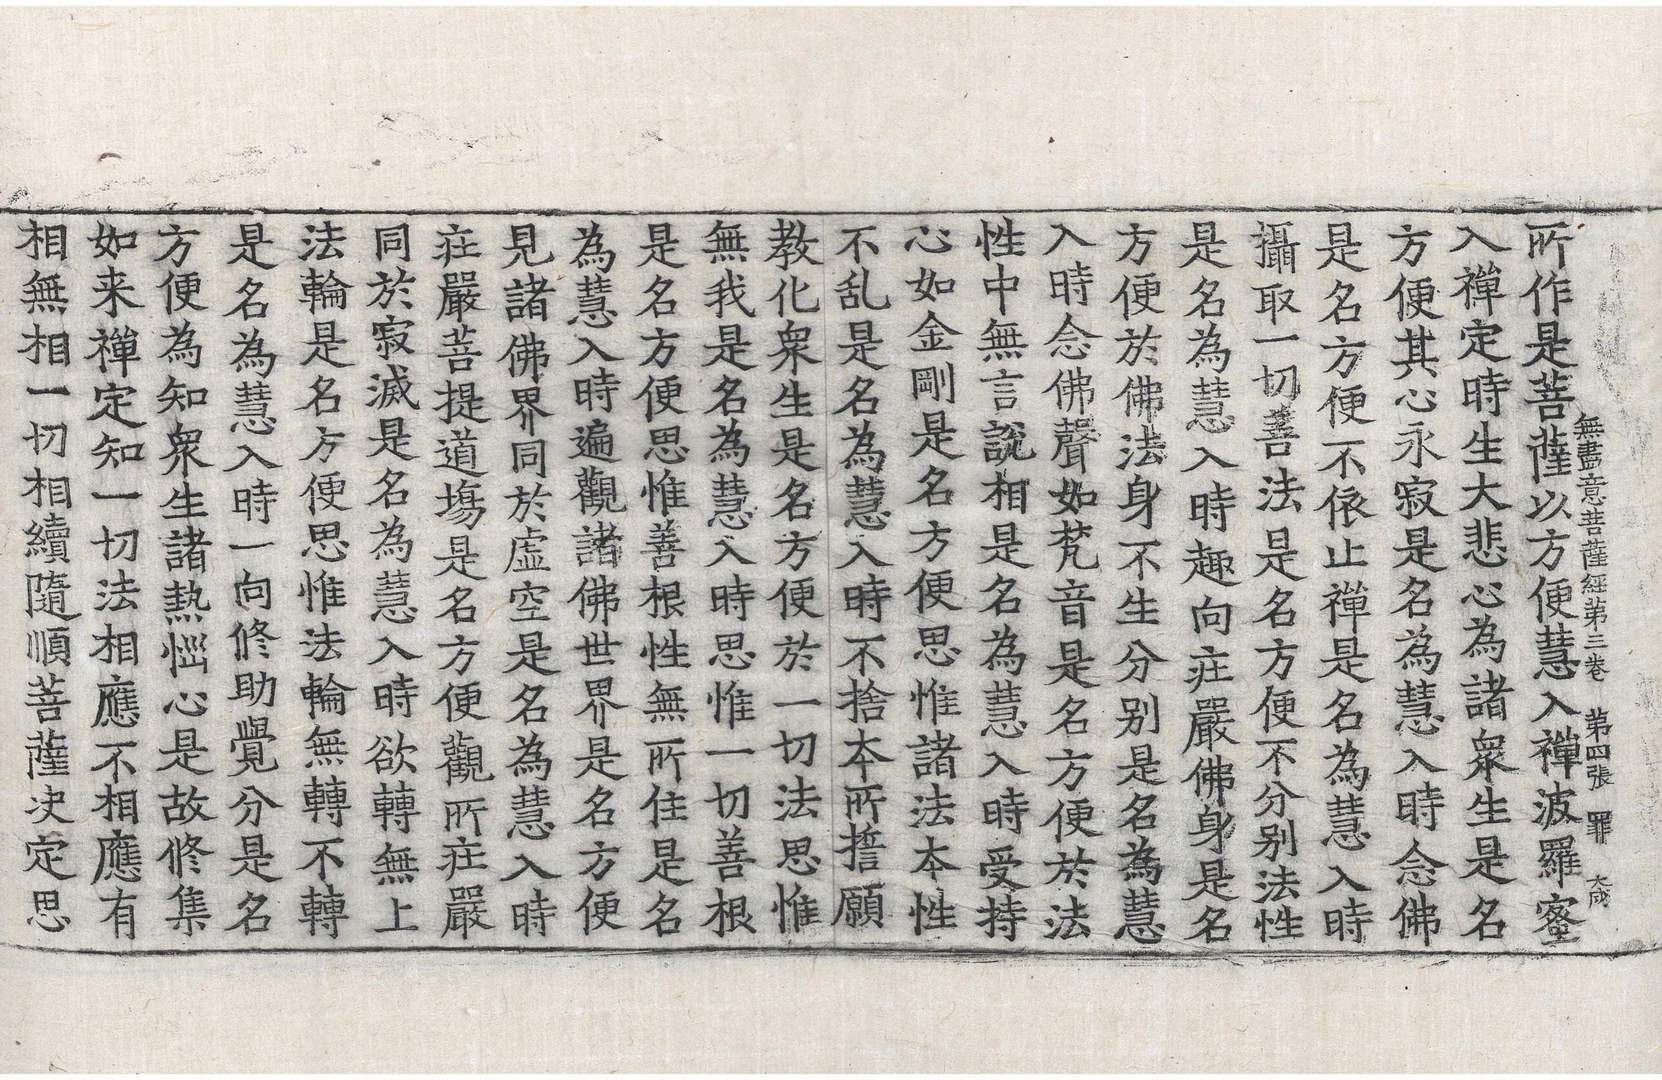 無盡意菩薩經第三卷 第四張 罪 大成
所作是菩薩以方便慧入禪波羅蜜
入禪定時生大悲心為諸衆生是名
方便其心永寂是名為慧入時念佛
是名方便不依止禪是名為慧入時
攝取一切善法是名方便不分別法性
是名為慧入時趣向莊嚴佛身是名
方便於佛法身不生分別是名為慧
入時念佛聲如梵音是名方便於法
性中無言說相是名為慧入時受持
心如金剛是名方便思惟諸法本性
不乱是名為慧入時不捨本所誓願
教化衆生是名方便於一切法思惟
無我是名為慧入時思惟一切善根
是名方便思惟善根性無所住是名
為慧入時遍觀諸佛世界是名方便
見諸佛界同於虛空是名為慧入時
莊嚴菩提道場是名方便觀所莊嚴
同於寂滅是名為慧入時欲轉無上
法輪是名方便思惟法輪無轉不轉
是名為慧入時一向修助覺分是名
方便為知衆生諸熱惱心是故修集
如来禪定知一切法相應不相應有
相無相一切相續隨順菩薩决定思